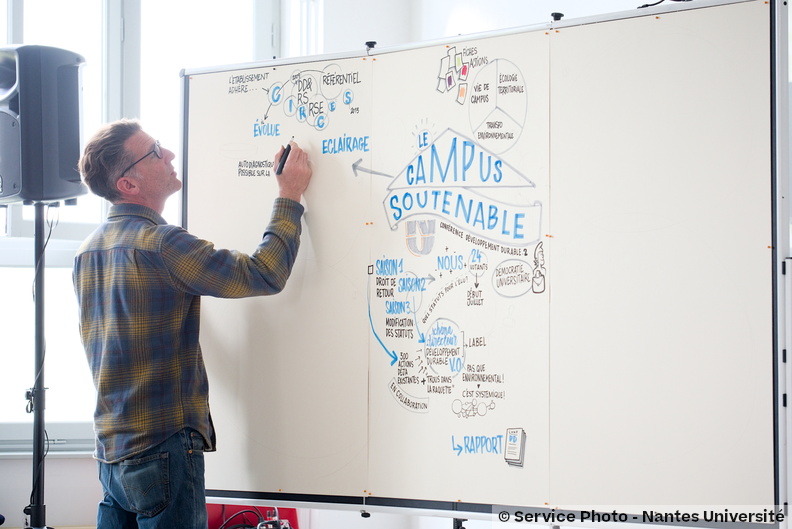 L'ÉTABLISSEMENT
ADHÈRE...
DD&
RS
RÉFÉRENTIEL
RSE
ÉVOLUE
ECLAIRAGE
POSSIBLE SUR LA
FICHES
ACTIONS
ÉCOLOGIE
TERRITORIALE
VIE DE
CAMPUS
TRANSFO
ENVIRONNEMENTALE
LE
CAMPUS
SOUTENABLE
CONFÉRENCE DÉVELOPPEMENT DURABLE
SAISON 1
DROIT DE
RETOUR
SAISON 2
SAISON 3
MODIFICATION
DES STATUTS
NOUS
24
VOTANTS
DÉBUT
JUILLET
QUELS STATUTS POUR L'ELU?
DÉMOCRATIE
UNIVERSITAIRE
schéma
directeur
DÉVELOPPEMENT
DURABLE V.0
LABEL
300
ACTIONS
DÉJÀ
EXISTANTES
+ TROUS DANS
LA RAQUETTE
EN COLLABORATION
PAS QUE
ENVIRONNEMENTAL!
C'EST SYSTÉMIQUE!
RAPPORT
© Service Photo - Nantes Université